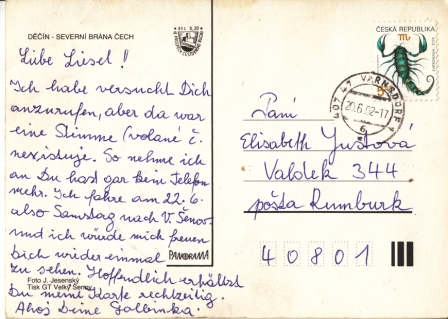 DĚČÍN - SEVERNÍ BRÁNA ČECH
Liebe Liesel!
Ich habe versucht Dich
anzurufen, aber da war
eine Stimme (volané č.
neexistuje. So nehme ich
an Du hast gar kein Telefon
mehr. Ich fahre am 22.6.
also Samstag nach V. Šenov
und ich würde mich freuen
Dich wieder einmal
zu sehen. Hoffentlich erhältst
Du meine Karte rechtzeitig.
Ahoj Deine
PANORAMA
Foto J. Jesenský
Tisk GT Velký Šenov
ČESKÁ REPUBLIKA
407 47 VARNSDORF 1
20.6.02-17
6
Paní
Elisabeth Justová
Valdek 344
pošta Rumburk
40801